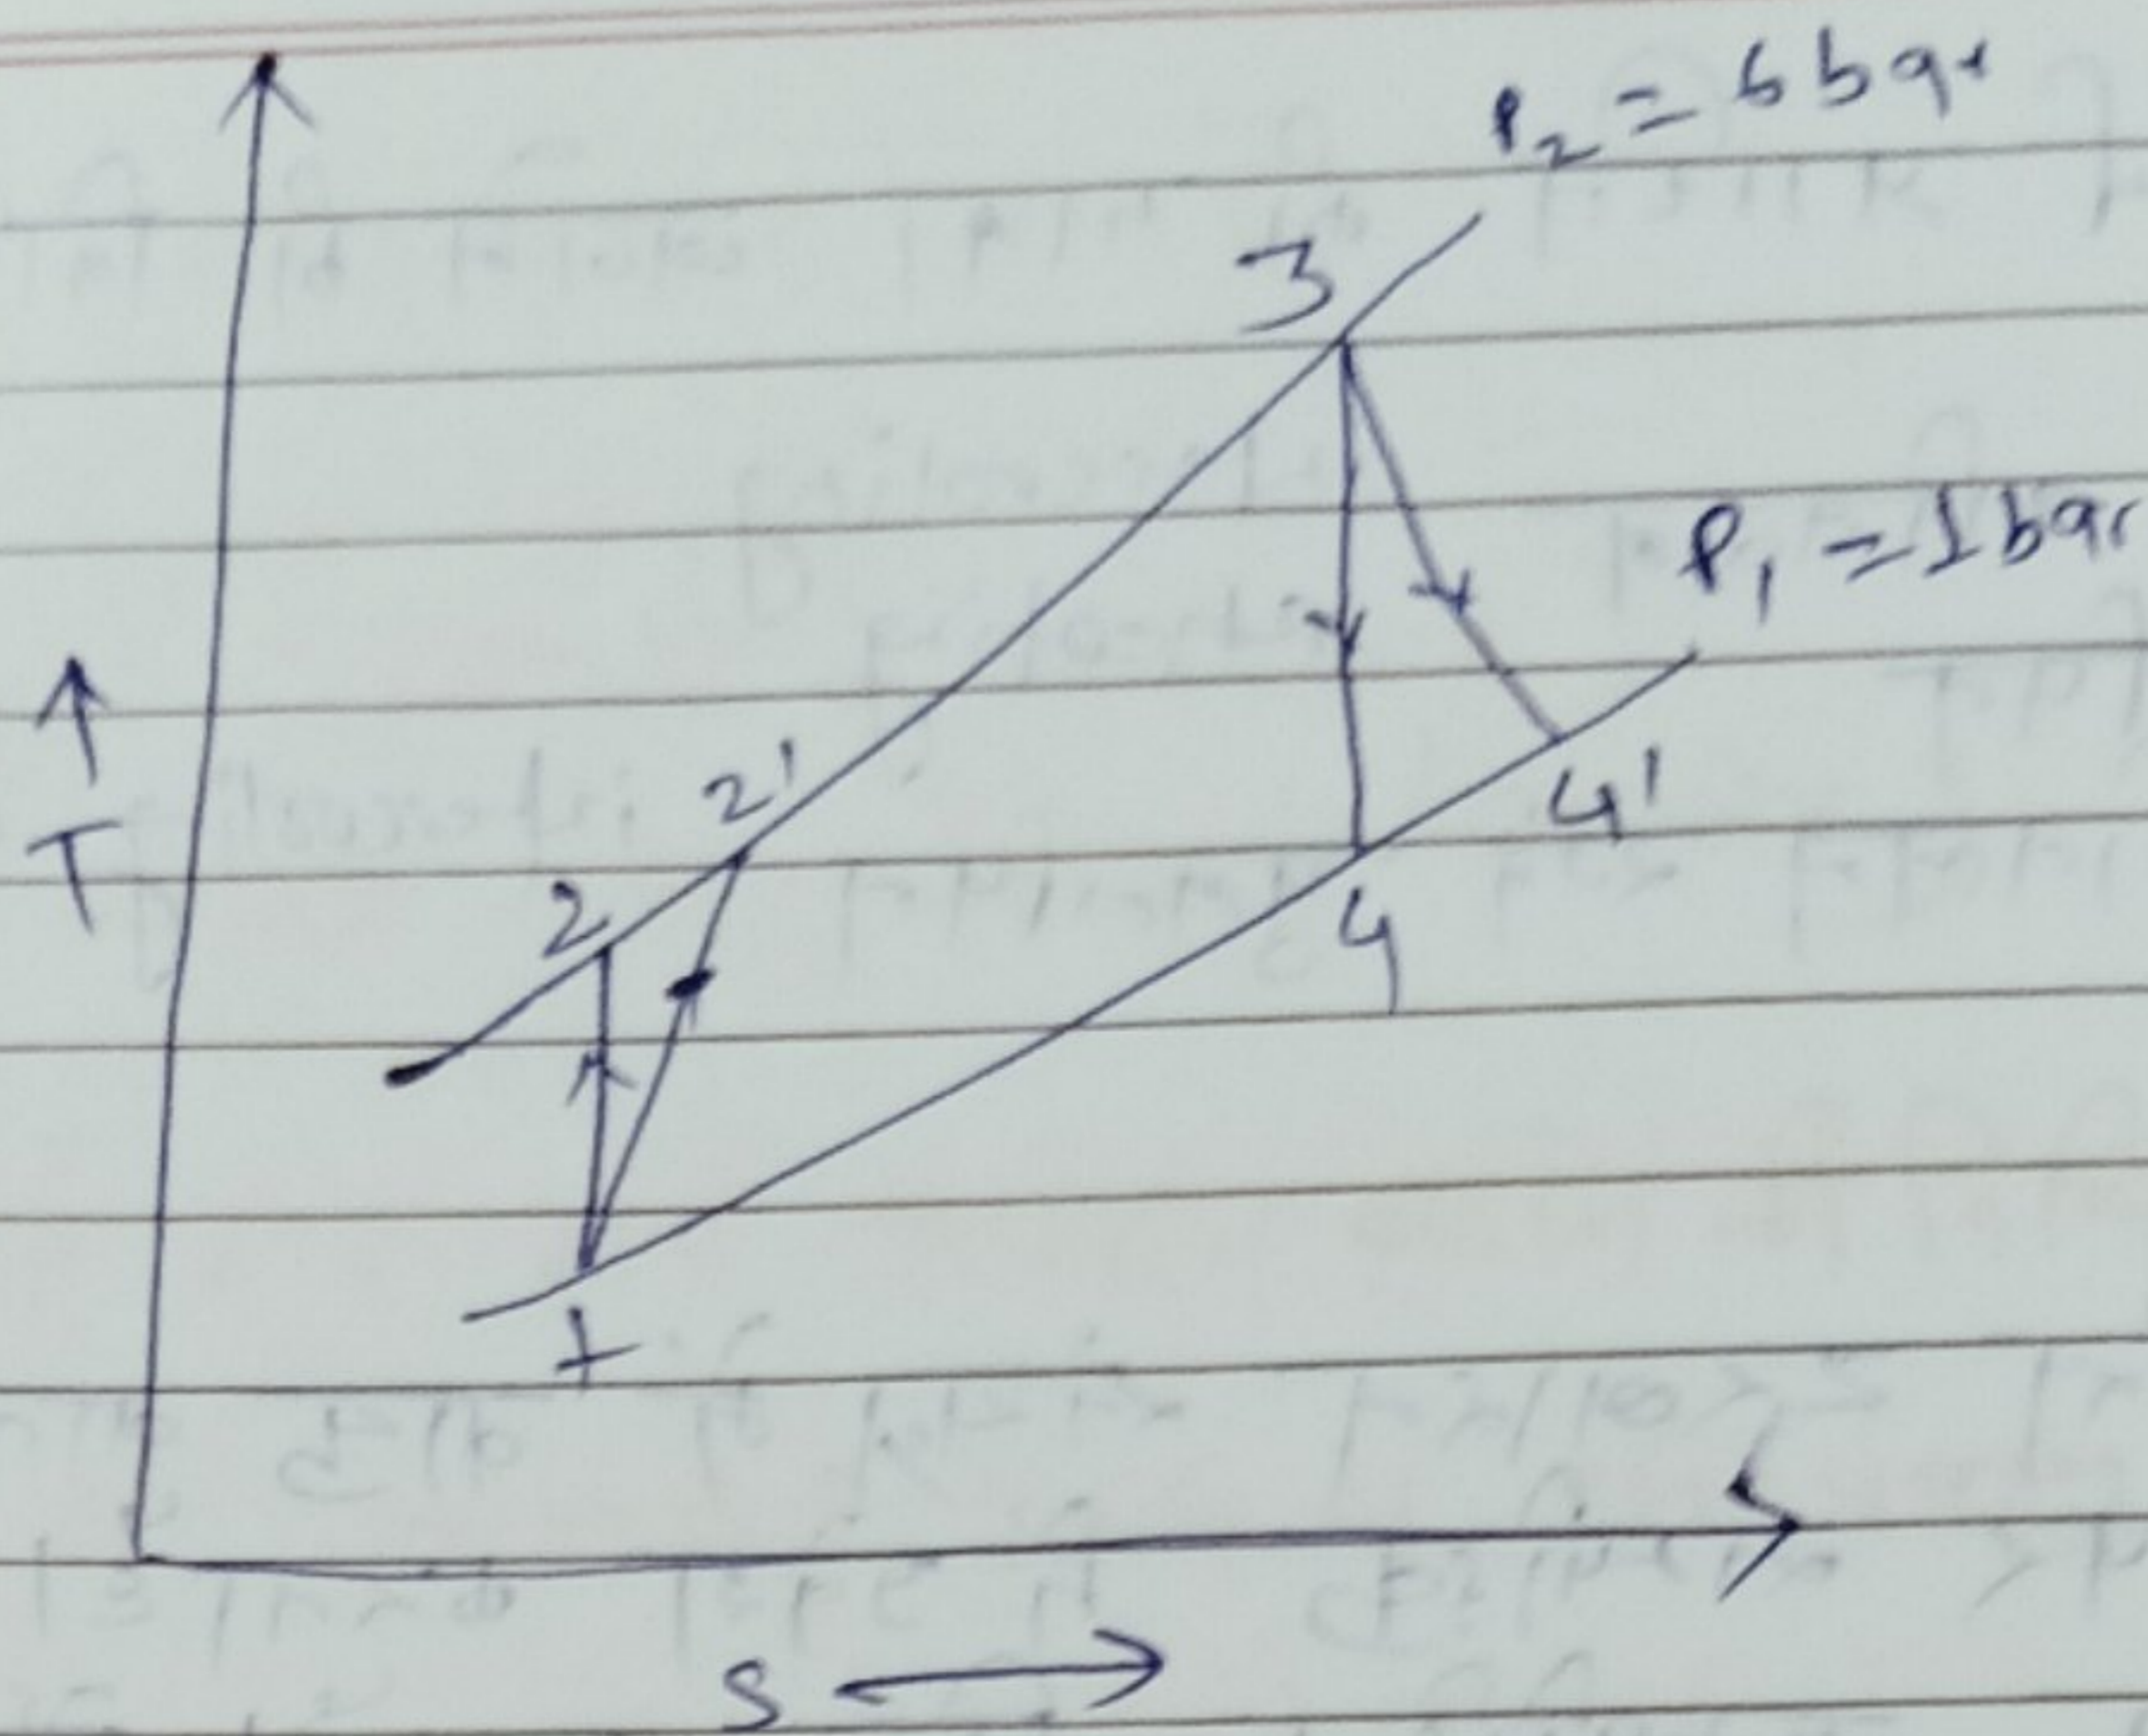 P2 = 6 bar
3
P1 = 1 bar
T
2'
4'
2
4
1
S